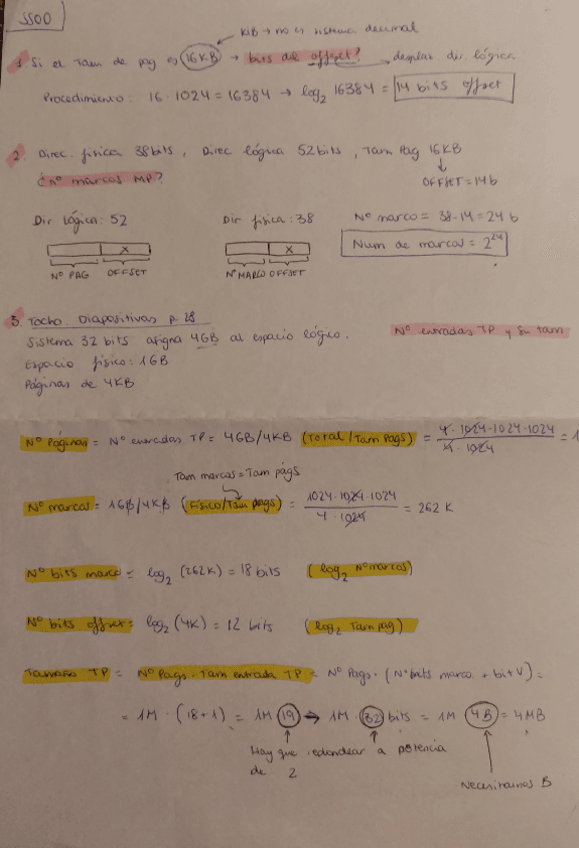 SSOO
KiB → no es sistema decimal
1. Si el Tam de pag es 16KB → bits del offset? desplaz. dir. lógica.
Procedimiento: 16 · 1024 = 16384 → log₂ 16384 = 14 bits offset
2. Direc. física 38bits, Direc lógica 52bits, Tam Pag 16KB
¿nº marcos MP?
OFFSET = 14b
Dir lógica: 52
Dir física: 38
Nº marco = 38-14 = 24 b
x
x
Num de marcos = 2²⁴
Nº PAG OFFSET
Nº MARCO OFFSET
3. Tocho Diapositivas p. 28
Sistema 32 bits asigna 4GB al espacio lógico.
Nº entradas TP y su tam
Espacio físico: 1GB
Páginas de 4KB
Nº Páginas = Nº entradas TP = 4GB/4KB (Total/Tam Pags) = 4 · 1024 · 1024 · 1024 / 4 · 1024 = 1
Tam marcos = Tam págs
Nº marcos = 1GB/4KB (Físico/Tam pags) = 1024 · 1024 · 1024 / 4 · 1024 = 262 K
Nº bits marco = log₂ (262K) = 18 bits (log₂ Nº marcos)
Nº bits offset = log₂ (4K) = 12 bits (log₂ Tam pag)
Tamaño TP = Nº Pags · Tam entrada TP = Nº Pags · (Nº bits marco + bit V) =
= 1M · (18+1) = 1M 19 → 1M · 32 bits = 1M 4B = 4MB
Hay que redondear a potencia
de 2
Necesitamos B